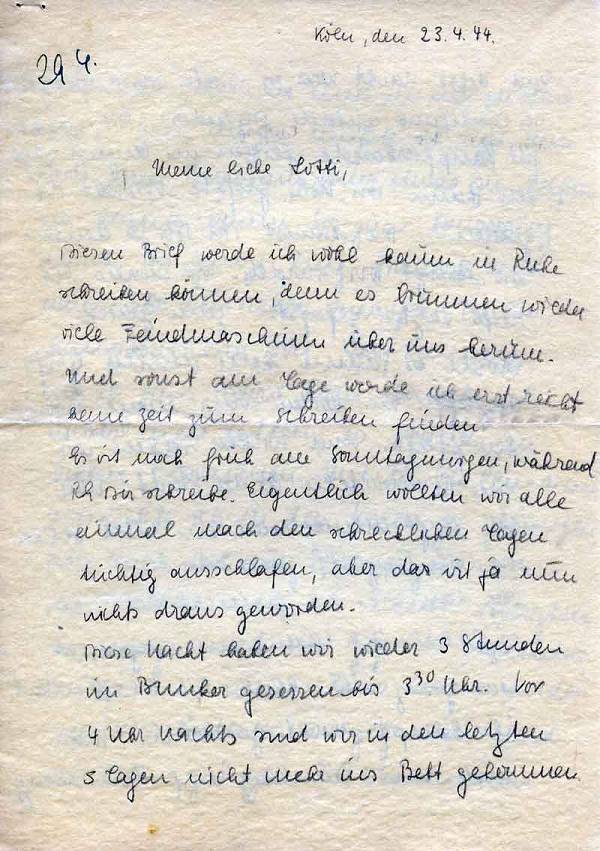 Köln, den 23.4.44.
29 4.
Meine liebe Lotti,
Diesen Brief werde ich wohl kaum in Ruhe
schreiben können, denn es brummen wieder
viele Feindmaschinen über uns herum.
Und sonst am Tage werde ich erst recht
keine Zeit zum Schreiben finden
Es ist noch früh am Sonntagmorgen, während
ich Dir schreibe. Eigentlich wollten wir alle
einmal nach den schrecklichen Tagen
tüchtig ausschlafen, aber das ist ja nun
nichts draus geworden.
Diese Nacht haben wir wieder 3 Stunden
im Bunker gesessen bis 3³⁰ Uhr. Vor
4 Uhr nachts sind wir in den letzten
5 Tagen nicht mehr ins Bett gekommen.